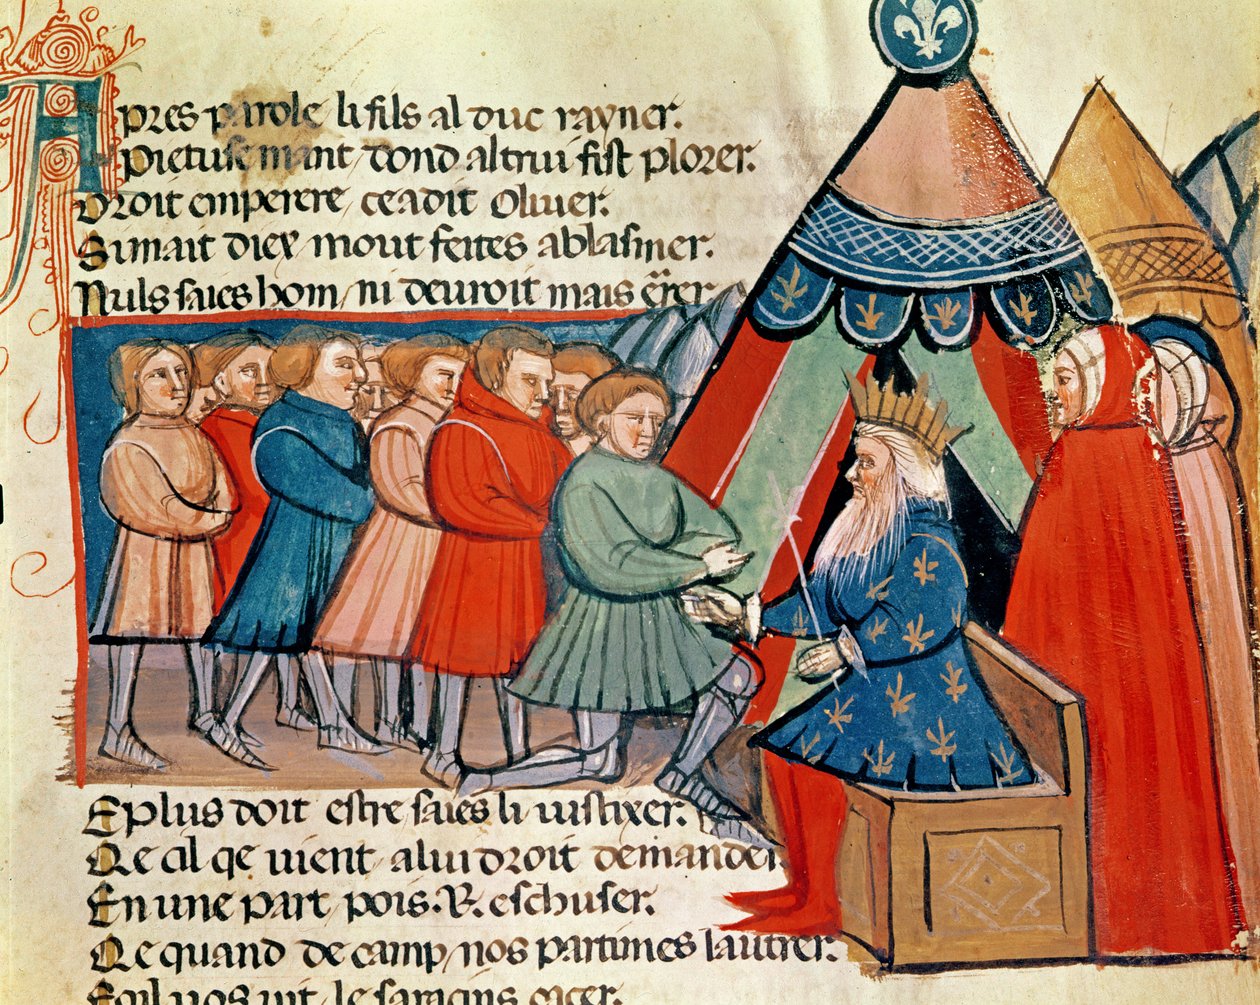 Apres parole li fils al duc rayner.
Pietusemant dond altrui fist plorer.
Droit emperere / ce a dit Oliuer.
Si mait diex / mout feites a blasmer.
Nuls saies hom / ni deuroit mais
E plus doit estre saies li iustixer.
Qe cil qe uient a lui droit demander
En une part pois .R. eschuser.
Qe quand de camp / nos partimes lautrer.
le saracins